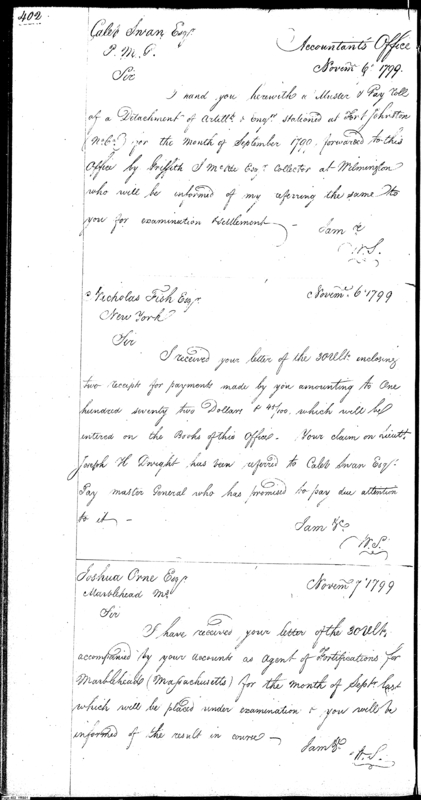 402
Caleb Swan Esqr
P. M. G.
Accountants Office
Novemr 6th 1799.
Sir
I hand you herewith a Muster & Pay Roll
of a Detachment of Artillts & Engrs stationed at Fort Johnston
(No Ca) for the month of September 1799. forwarded to this
Office by Griffith J McRee Esqr Collector at Wilmington
who will be informed of my referring the same to
you for examination & settlement —
I am &
W. S.
Nicholas Fish Esqr
Novemr 6th 1799
New York
Sir
I received your letter of the 30 Ult. enclosing
two receipts for payments made by you amounting to One
hundred seventy two Dollars & 45/100, which will be
entered on the Books of this Office. Your claim on Lieut.
Joseph H Dwight has been referred to Caleb Swan Esqr
Pay master General who has promised to pay due attention
to it —
I am &c.
W. S.
Joshua Orne Esqr
Novemr 7th 1799
Marblehead Ms
Sir
I have received your letter of the 30 Ult.
accompanied by your accounts as agent of Fortifications for
Marblehead (Massachusetts) for the month of Septr last
which will be placed under examination & you will be
informed of the result in course —
I am &c.
W. S.